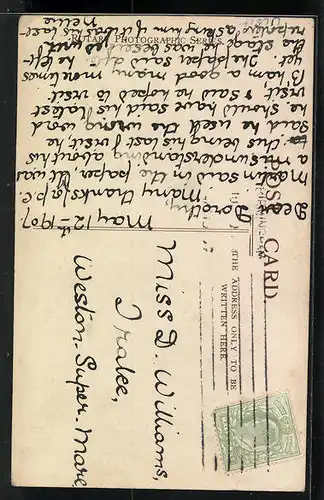 ROTARY PHOTOGRAPHIC SERIES
POST CARD.
THE ADDRESS ONLY TO BE
WRITTEN HERE.
May 12th - 1907
Dear Dorothy,
Many thanks for p.c.
Martin said in the paper, it was
a misunderstanding about his
this being his last visit, he
said he used the wrong word
he should have said his latest
visit, & said he hoped to visit
B'ham a good many more times
yet. The paper said after he left
the stage he was besieged with
asking him if it was his last
Nellie
Miss D. Williams,
Tralee,
Weston-Super-Mare,